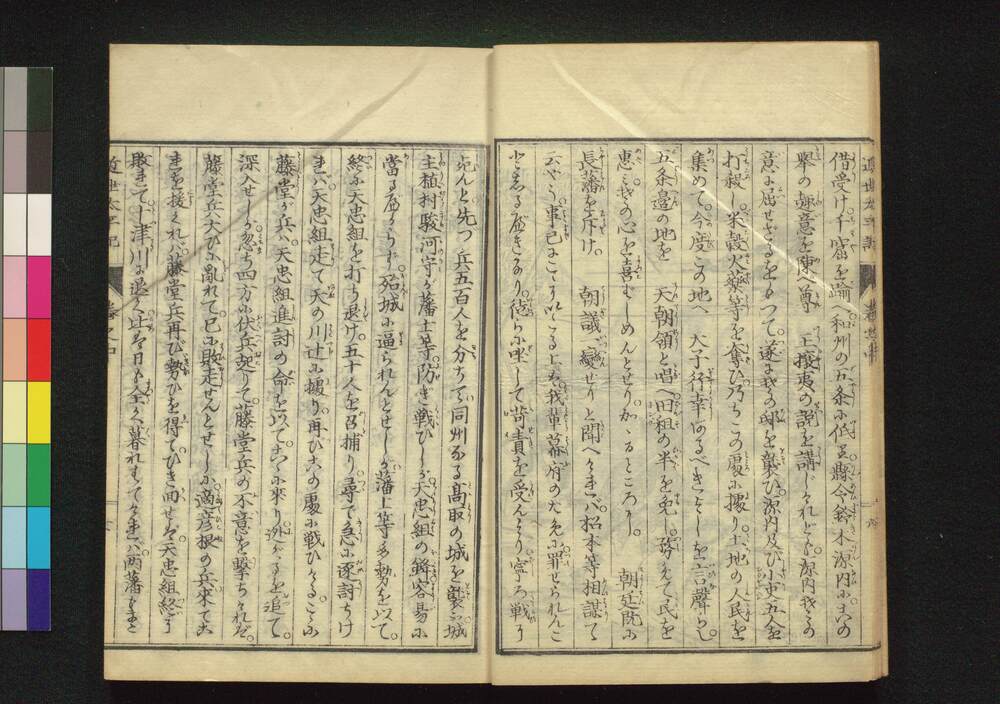 借受け千窟を踰へ和州の五条に低る縣令鈴木源内に
挙の趣意を陳べ尊王攘夷の説を講じけれども源内
意に屈せざるをもつて遂に其の邸を襲ひ源内及び小吏五人を
打殺し米穀火薬等を奪ひ乃ちこの處に據り土地の人民を
集めて今度この地へ 天子行幸あるべきよしを言聲らし
五条邊の地を 天朝領と唱へ田租の半を免し務めて民を
恵み其の心を喜ばしめんとせりかゝるところに 朝廷既に
長藩を斥け 朝議一變せりと聞へければ松本等相謀て
云やう事已にこゝに 我輩幕府のために罪せられんこ
と 徒らに坐して苛責を受んより寧ろ戦り
死んと先づ兵五百人を分ちて同州なる高取の城を襲ふ城
主植村駿河守が藩士等防ぎ戦ひしが天忠組の鋒容易に
當る 城に逼られんとせしが藩士等 勤を以て
終に天忠組を打ち退け五十人を召捕り尋で急に逐討ちけ
れば天忠組走て天の川辻に據り再び大の處に戦ひける
藤堂が兵は天忠組進討の命を以て に來り を追て
深入せしが忽ち四方に伏兵起りて藤堂兵の不意を撃ちければ
藤堂兵大ひに亂れて已に敗走せんとせしに適彦根の兵來て
を援くれば藤堂兵再び勢ひを得てひき回せば天忠組終に
敗れて十津川に退く 日も全く暮れければ両藩も
近世太平記
巻之四